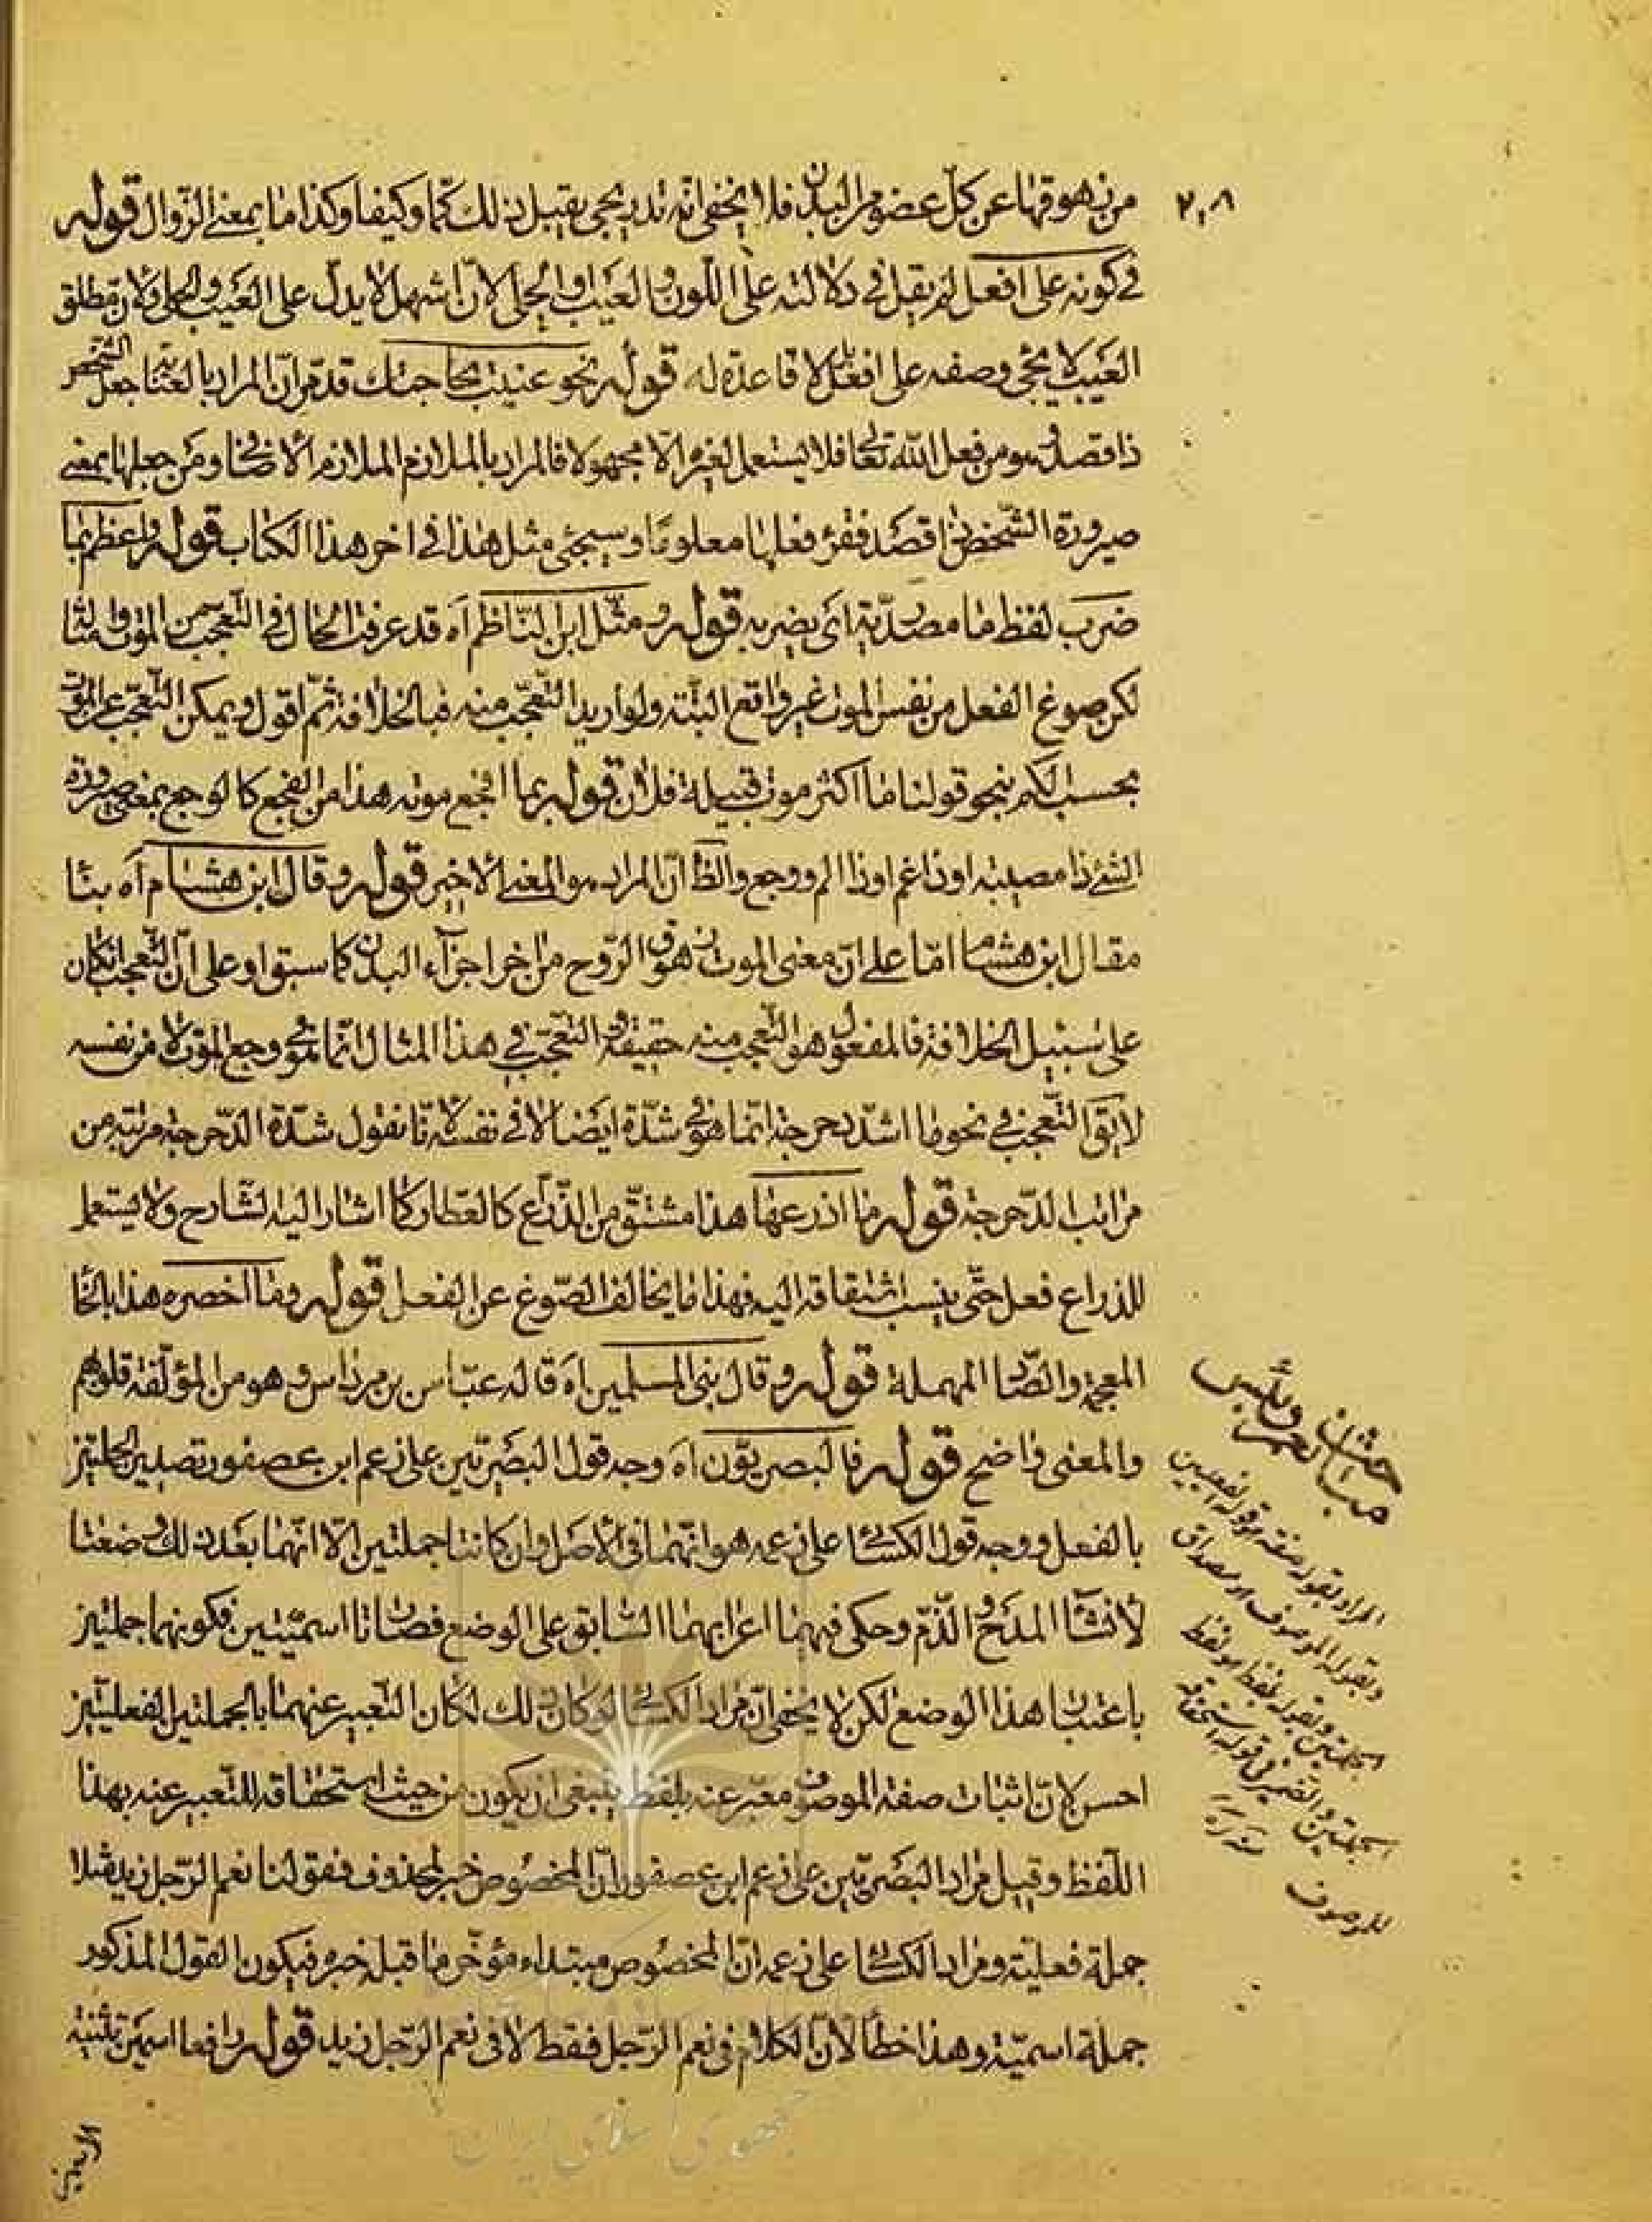 ٢٠٨
من زهوقها عن كلّ عضو من البدن فلا يخفى انّه تدريجى يقبل ذلك كمّا وكيفا وكذا ما بمعنى الزّوال قوله
فى كونه على افعل لم يقل فى دلالته على اللّون والعيب او الحلى لانّ اشهل لا يدلّ على العيب والحلى ولانّ مطلق
العيب لا يجى وصفه على افعل لا قاعدة له قوله نحو عنيت بحاجتك قد مرّ انّ المراد بالعناية جعل الشّخص
ذا قصد وهو من فعل اللّه تعالى فلا يستعمل لغيره الّا مجهولا فالمراد بالملازم الملازم الاضافى ومن جعلها بمعنى
صيرورة الشّخص ذا قصد فقرء فعلها معلوما وسيجئى مثل هذا فى اخر هذا الكتاب قوله واعظم بما
ضرب لفظ ما مصدّرية اى بضربه قوله ومثّل ابن النّاظم آه قد عرفت الحال فى التّعجّب من الموت والمثال
لكن صوغ الفعل من نفس الموت غير واقع البتّه ولو اريد التّعجّب منه فبالخلافة ثمّ اقول ويمكن التّعجّب عن الموت
بحسب الكم بنحو قولنا ما اكثر موت قبيلة فلان قوله بما افجع موته هذا من الفجع كالوجع بمعنى صيرورة
الشئ ذا مصيبة او ذا غم او ذا الم ووجع والظّ انّ المراد هو المعنى الاخير قوله وقال ابن هشام آه بناء
مقال ابن هشام امّا على انّ معنى الموت زهوق الرّوح من اخر اجزآء البدن كما سبق او على انّ التّعجب ان كان
على سبيل الخلافة فالمفعول هو التّعجب منه حقيقة والتّعجّب فى هذا المثال انّما هو فى وجع الموت لا من نفسه
لا يقال التّعجب فى نحو ما اشدّ دحرجته انّما هو فى شدّة ايضا لا فى نفسه لانّا نقول شدّة الدّحرجة مرتبة من
مراتب الدّحرجة قوله ما اذرعها هذا مشتقّ من الذّراع كالعطّار كما اشار اليه الشّارح ولا يستعمل
للذراع فعل حتّى ينسب اشتقاقه اليه فهذا ما يخالف الصّوغ عن الفعل قوله وما اخصره هذا بالخاء
المعجمة والصّاد المهملة قوله وقال نبى المسلمين آه قاله عبّاس بن مرداس وهو من المؤلّفة قلوبهم
والمعنى واضح قوله فالبصريّون آه وجه قول البصريّين على زعم ابن عصفور تصدير الجملتين
بالفعل ووجه قول الكسائى على زعمه هو انّهما فى الاصل وان كانتا جملتين الّا انّهما بعد ذلك وضعتا
لانشاء المدح والذّم وحكى فيهما اعرابهما السّابق على الوضع فصارتا اسميّتين فكونهما جملتين
باعتبار هذا الوضع لكن لا يخفى انّ مراد الكسائى لو كان ذلك لكان التّعبير عنهما بالجملتين الفعليّتين
احسن لانّ اثبات صفة الموصوف معبّر عنه بلفظ ينبغى ان يكون من حيث استحقاقه للتّعبير عنه بهذا
اللّفظ وقيل مراد البصريّين على زعم ابن عصفور انّ المخصوص خبر لمحذوف فقولنا نعم الرّجل زيد مثلا
جملة فعليّة ومراد الكسائى على زعمه انّ المخصوص مبتداء مؤخّر ما قبله خبره فيكون القول المذكور
جملة اسميّة وهذا خطأ لانّ الكلام فى نعم الرّجل فقط لا فى نعم الرّجل زيد قوله رافعا اسمين تثنية
مباحث نعم وبئس
المراد بقوله صفة قوله الفعليّتين
وبقوله الموصوف او مصداق
الجملتين وبقوله بلفظ هو لفظ
الجملتين والضّمير فى قوله استحقاقه
للموصوف
منه ره
جمهوری اسلامی ایران